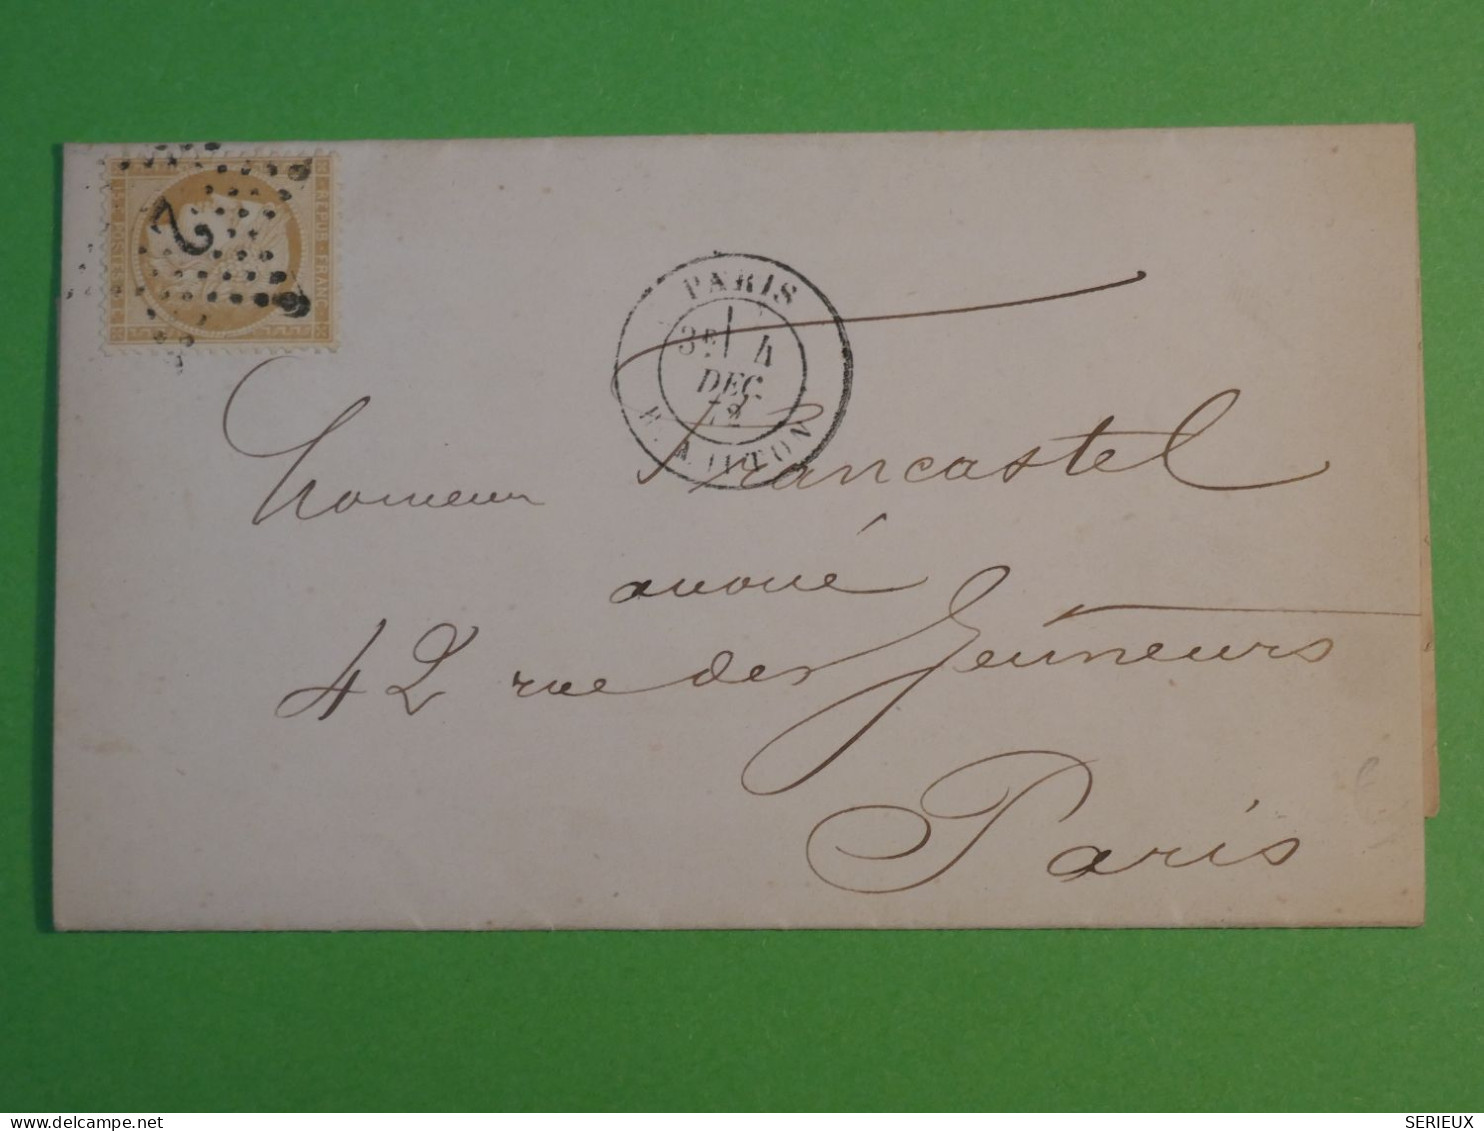 REPUB · FRANC
POSTES
2
PARIS
3E 4
DEC.
72
Monsieur Francastel
avoué
42 rue des Jeuneurs
Paris
www.delcampe.net
SERIEUX